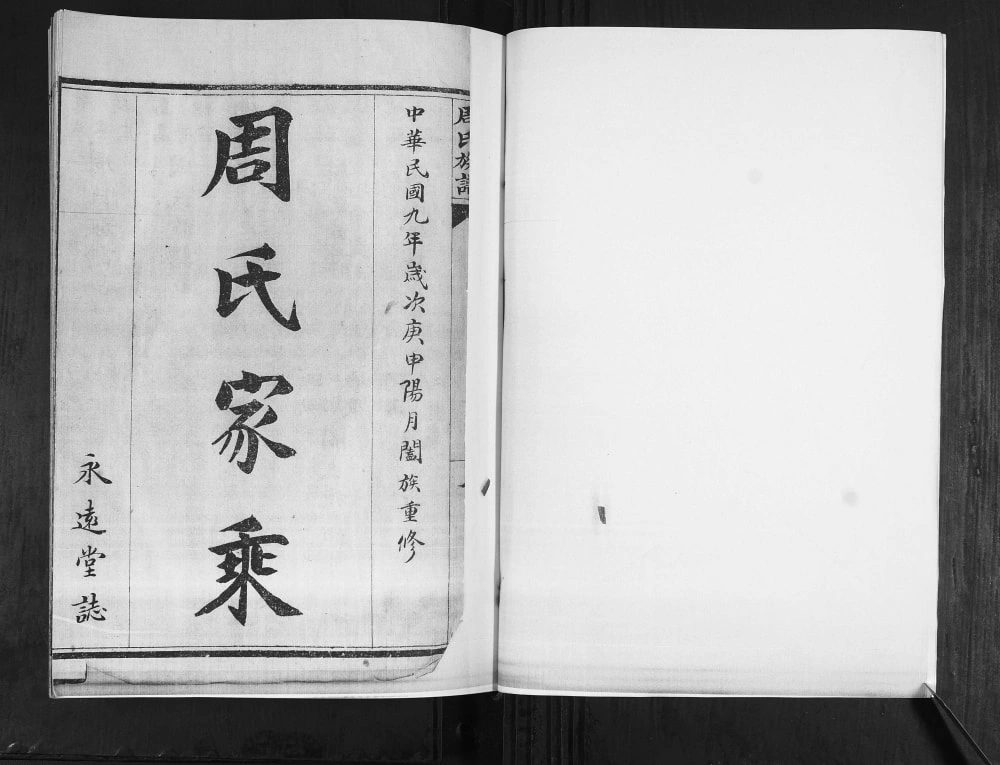 周氏族譜
中華民國九年歲次庚申陽月闔族重修
周氏家乘
永遠堂誌